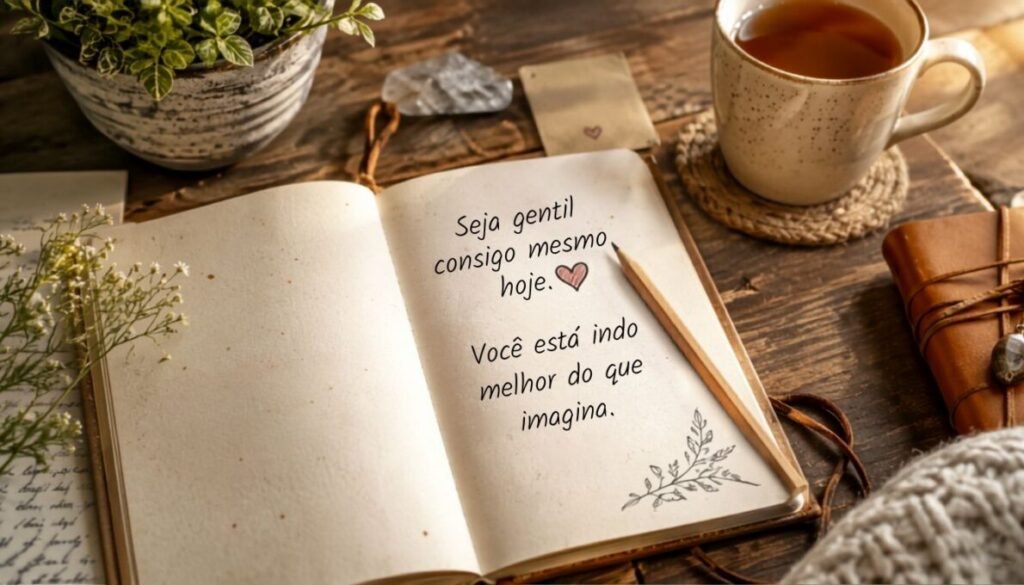 Seja gentil
consigo mesmo
hoje.
Você está indo
melhor do que
imagina.